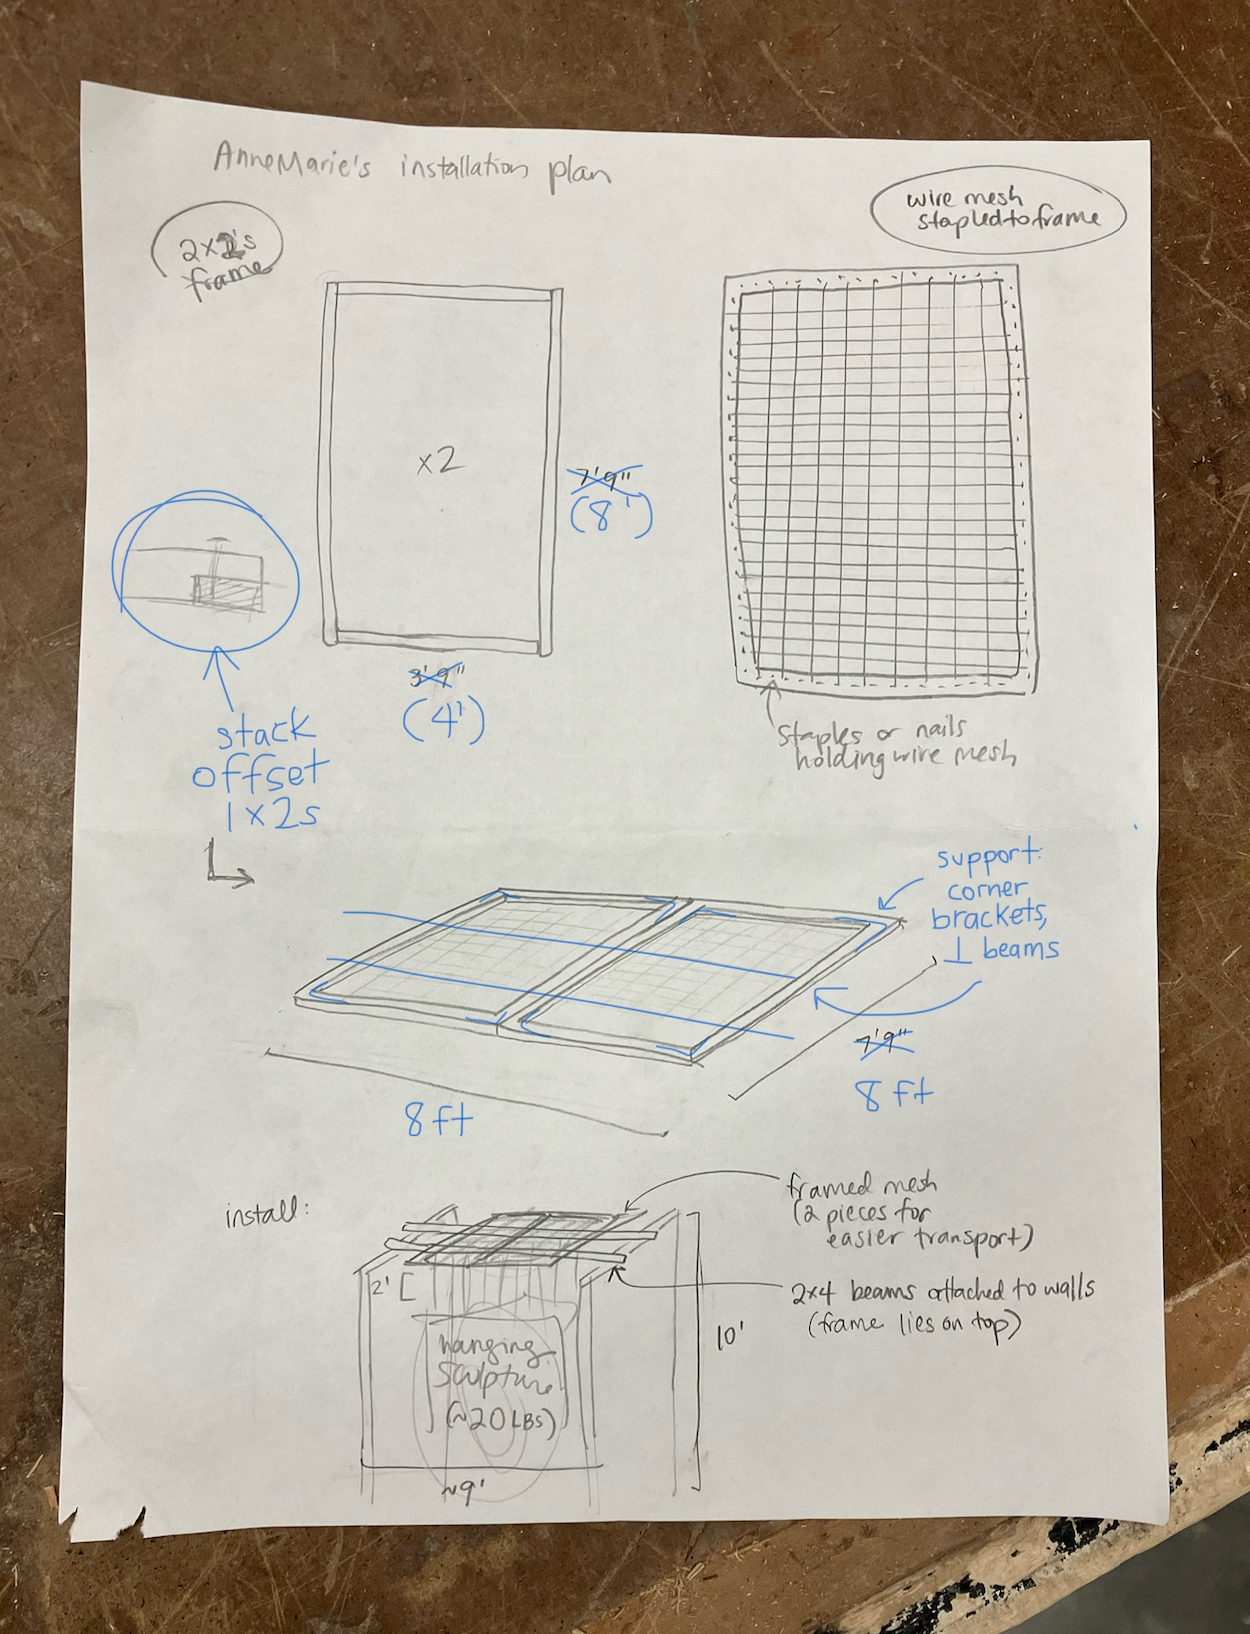 AnneMarie's installation plan
2x2's
frame
wire mesh
stapled to frame
x2
7'9"
(8')
3'9"
(4')
stack
offset
1x2s
staples or nails
holding wire mesh
support:
corner
brackets,
⊥ beams
7'9"
8 ft
8 ft
install:
framed mesh
(2 pieces for
easier transport)
2x4 beams attached to walls
(frame lies on top)
2'
10'
hanging
sculpture
(~20 LBS)
~9'